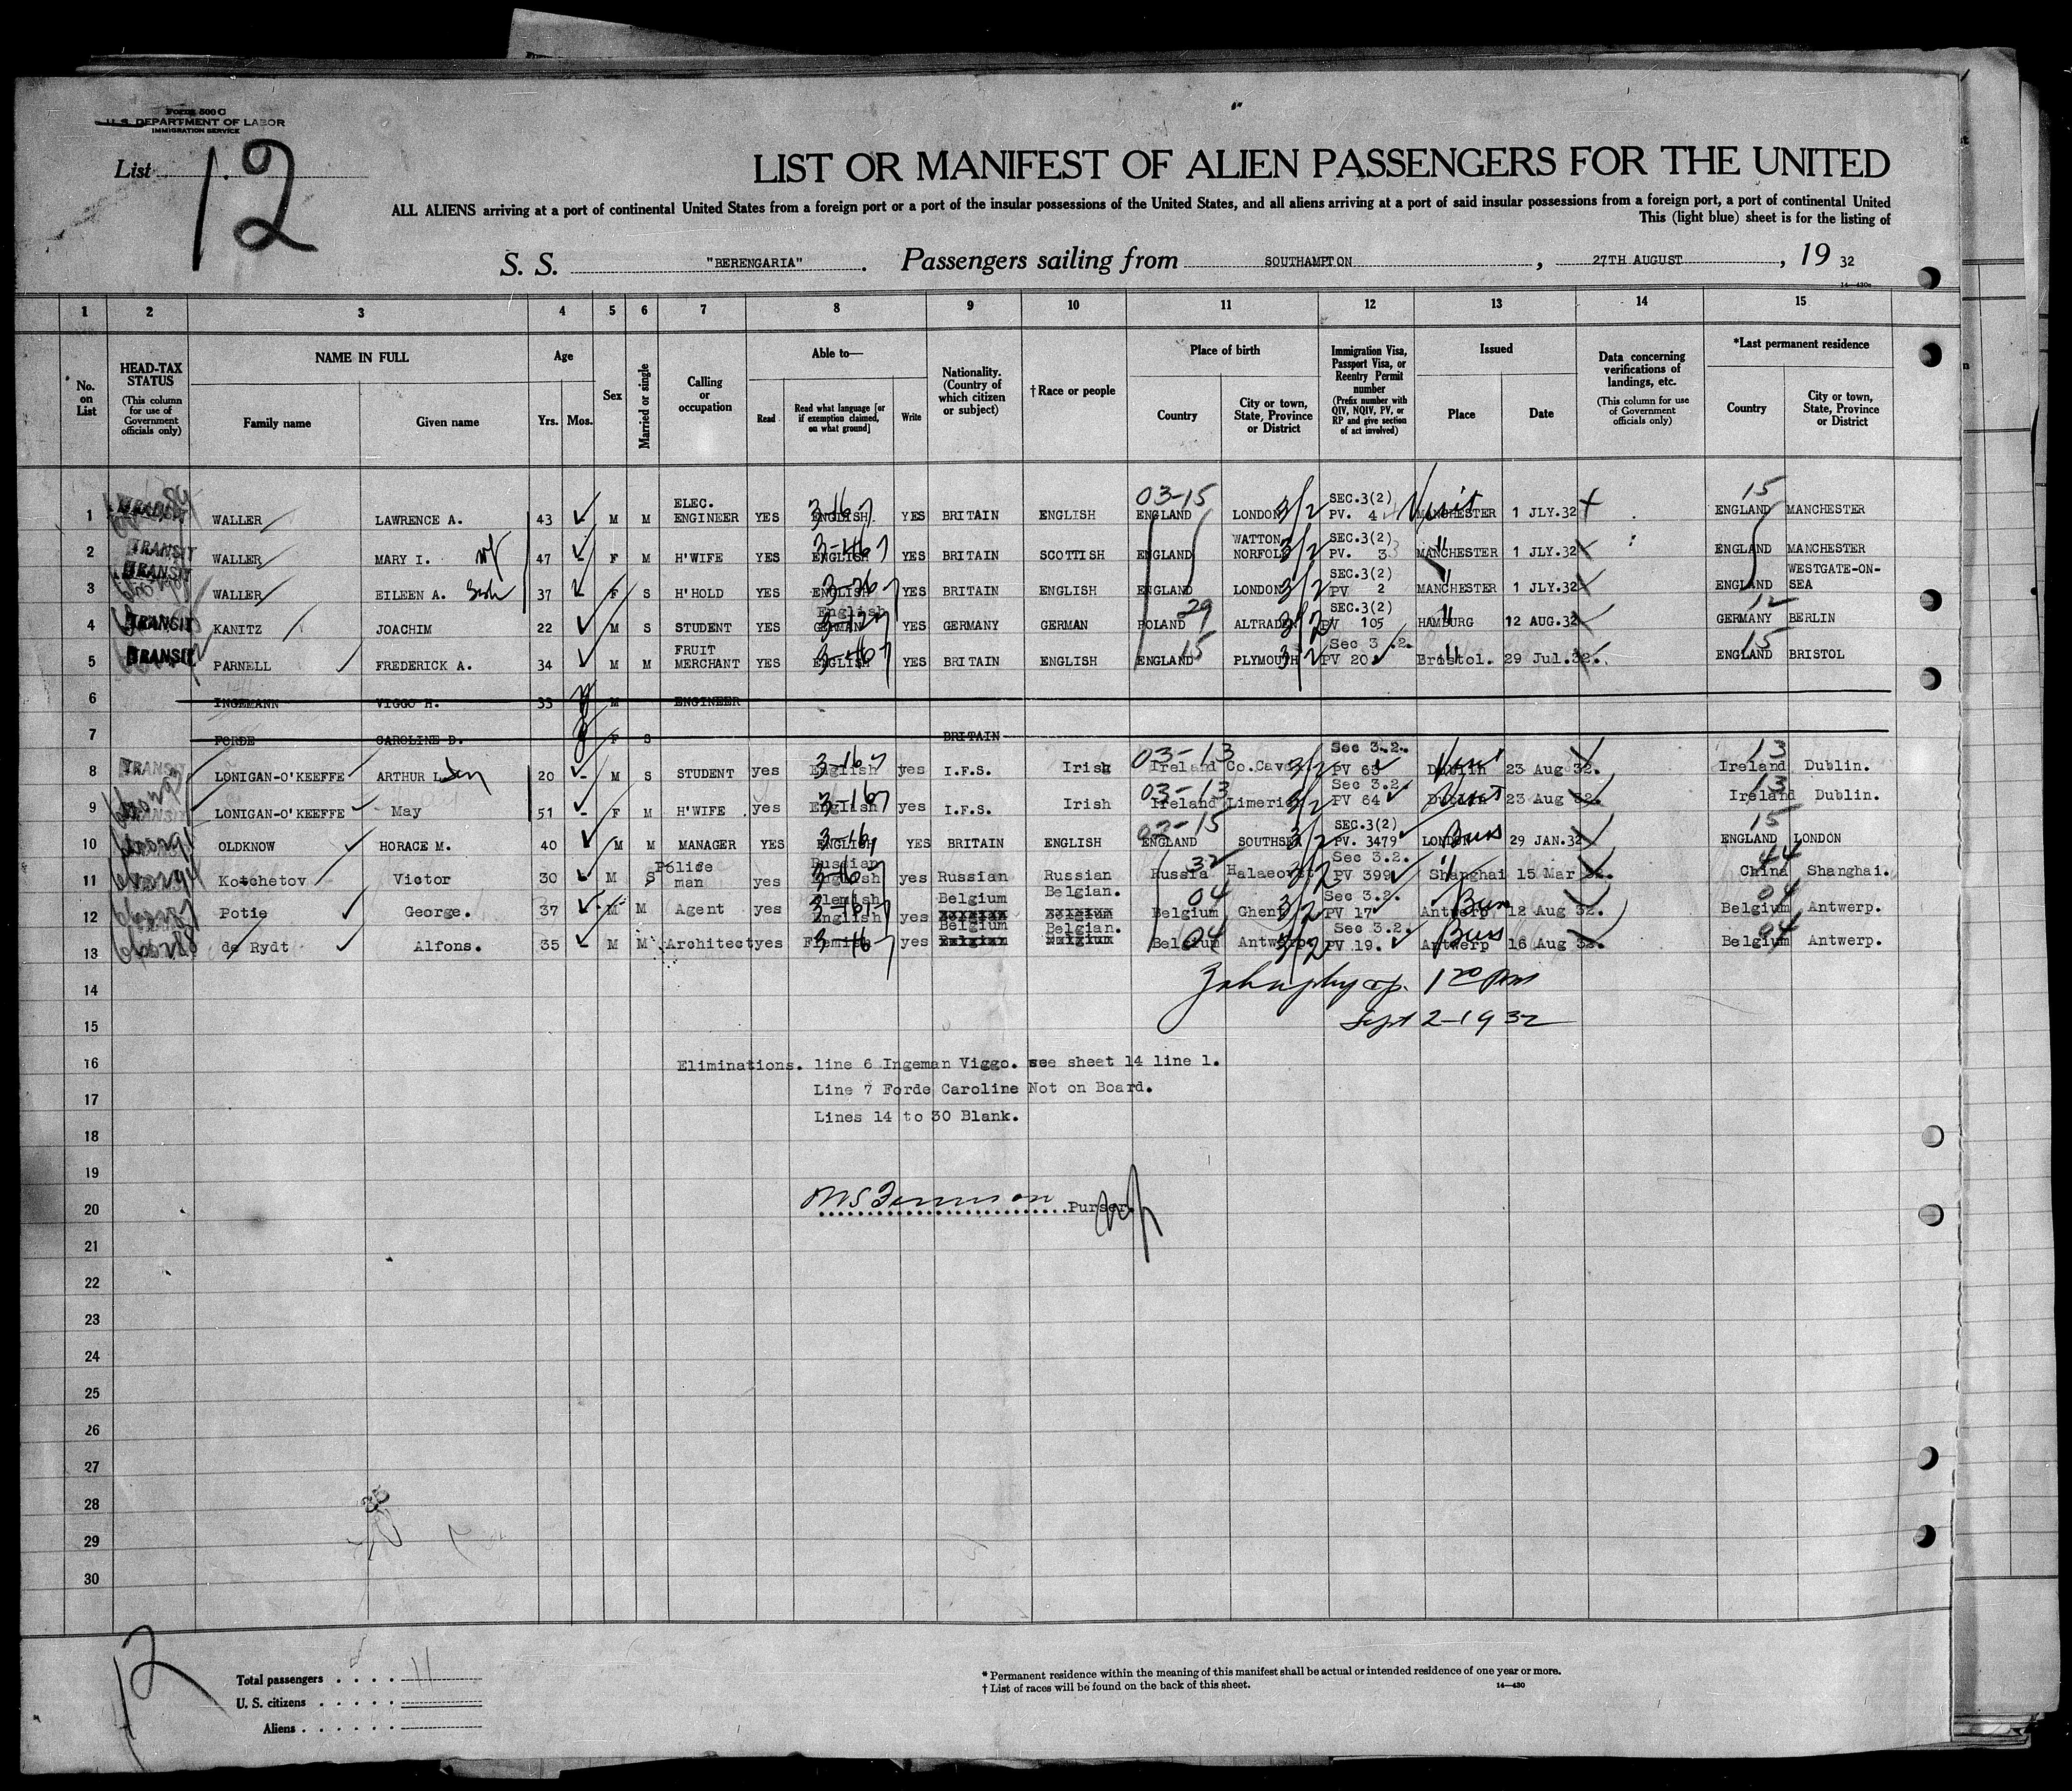 Form 500 C
U. S. DEPARTMENT OF LABOR
IMMIGRATION SERVICE
List 12
LIST OR MANIFEST OF ALIEN PASSENGERS FOR THE UNITED
ALL ALIENS arriving at a port of continental United States from a foreign port or a port of the insular possessions of the United States, and all aliens arriving at a port of said insular possessions from a foreign port, a port of continental United
This (light blue) sheet is for the listing of
S. S. "BERENGARIA". Passengers sailing from SOUTHAMPTON, 27TH AUGUST, 19 32
14—430c
1 2 3 4 5 6 7 8 9 10 11 12 13 14 15
No. on List
HEAD-TAX STATUS (This column for use of Government officials only)
NAME IN FULL Family name Given name
Age Yrs. Mos.
Sex
Married or single
Calling or occupation
Able to— Read Read what language [or if exemption claimed, on what ground] Write
Nationality. (Country of which citizen or subject)
† Race or people
Place of birth Country City or town, State, Province or District
Immigration Visa, Passport Visa, or Reentry Permit number (Prefix number with QIV, NQIV, PV, or RP and give section of act involved)
Issued Place Date
Data concerning verifications of landings, etc. (This column for use of Government officials only)
*Last permanent residence Country City or town, State, Province or District
1 TRANSIT WALLER LAWRENCE A. 43 M M ELEC. ENGINEER YES ENGLISH YES BRITAIN ENGLISH 03-15 ENGLAND LONDON 3/2 SEC.3(2) PV. 4 Visit MANCHESTER 1 JLY.32 15 ENGLAND MANCHESTER
2 TRANSIT WALLER MARY I. wf 47 F M H'WIFE YES ENGLISH YES BRITAIN SCOTTISH ENGLAND WATTON NORFOLK 3/2 SEC.3(2) PV. 3 MANCHESTER 1 JLY.32 ENGLAND MANCHESTER
3 TRANSIT WALLER EILEEN A. 37 F S H'HOLD YES ENGLISH YES BRITAIN ENGLISH ENGLAND LONDON 3/2 SEC.3(2) PV 2 MANCHESTER 1 JLY.32 ENGLAND WESTGATE-ON-SEA
4 TRANSIT KANITZ JOACHIM 22 M S STUDENT YES English GERMAN YES GERMANY GERMAN 29 POLAND 3/2 SEC.3(2) PV 105 HAMBURG 12 AUG.32 12 GERMANY BERLIN
5 TRANSIT PARNELL FREDERICK A. 34 M M FRUIT MERCHANT YES ENGLISH YES BRITAIN ENGLISH 15 ENGLAND PLYMOUTH 3/2 Sec 3.2. PV 20 Bristol. 29 Jul.32. 15 ENGLAND BRISTOL
6 INGEMANN VIGGO H. 33 M ENGINEER
7 FORDE CAROLINE D. F S BRITAIN
8 TRANSIT LONIGAN-O'KEEFFE ARTHUR L. 20 - M S STUDENT yes English yes I.F.S. Irish 03-13 Ireland Co.Cavan 3/2 Sec 3.2. PV 65 Dublin 23 Aug 32. 13 Ireland Dublin.
9 TRANSIT LONIGAN-O'KEEFFE May 51 - F M H'WIFE yes English yes I.F.S. Irish 03-13 Ireland Limerick 3/2 Sec 3.2. PV 64 Dublin 23 Aug 32. 13 Ireland Dublin.
10 OLDKNOW HORACE M. 40 M M MANAGER YES ENGLISH YES BRITAIN ENGLISH 03-15 ENGLAND SOUTHSEA 3/2 SEC.3(2) PV. 3479 LONDON Buss 29 JAN.32 15 ENGLAND LONDON
11 Kotchetov Victor 30 M S Police man yes Russian English yes Russian Russian 32 Russia 3/2 Sec 3.2. PV 399 Shanghai 15 Mar 32. 44 China Shanghai.
12 Potie George. 37 M M Agent yes Flemish English yes Belgium Belgian. 04 Belgium Ghent 3/2 Sec 3.2. PV 17 Antwerp Buss 12 Aug 32. 04 Belgium Antwerp.
13 de Rydt Alfons. 35 M M Architect yes Flemish yes Belgium Belgian. 04 Belgium Antwerp 3/2 Sec 3.2. PV 19. Antwerp Buss 16 Aug 32. 04 Belgium Antwerp.
14 1 20 pm
15 Sept 2-1932
16 Eliminations. line 6 Ingeman Viggo. see sheet 14 line 1.
17 Line 7 Forde Caroline Not on Board.
Lines 14 to 30 Blank.
18
19
20 Purser
21
22
23
24
25
26
27
28
29
30
12
Total passengers . . . . 11
U. S. citizens . . . . .
Aliens . . . . . .
* Permanent residence within the meaning of this manifest shall be actual or intended residence of one year or more.
† List of races will be found on the back of this sheet. 14—430